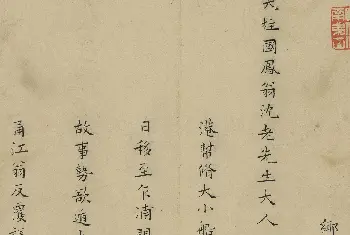 鄉
柱國鳳翁沈老先生大人
港幫脩大小船
日移至乍浦
故事勢欲遁
甬江翁反覆